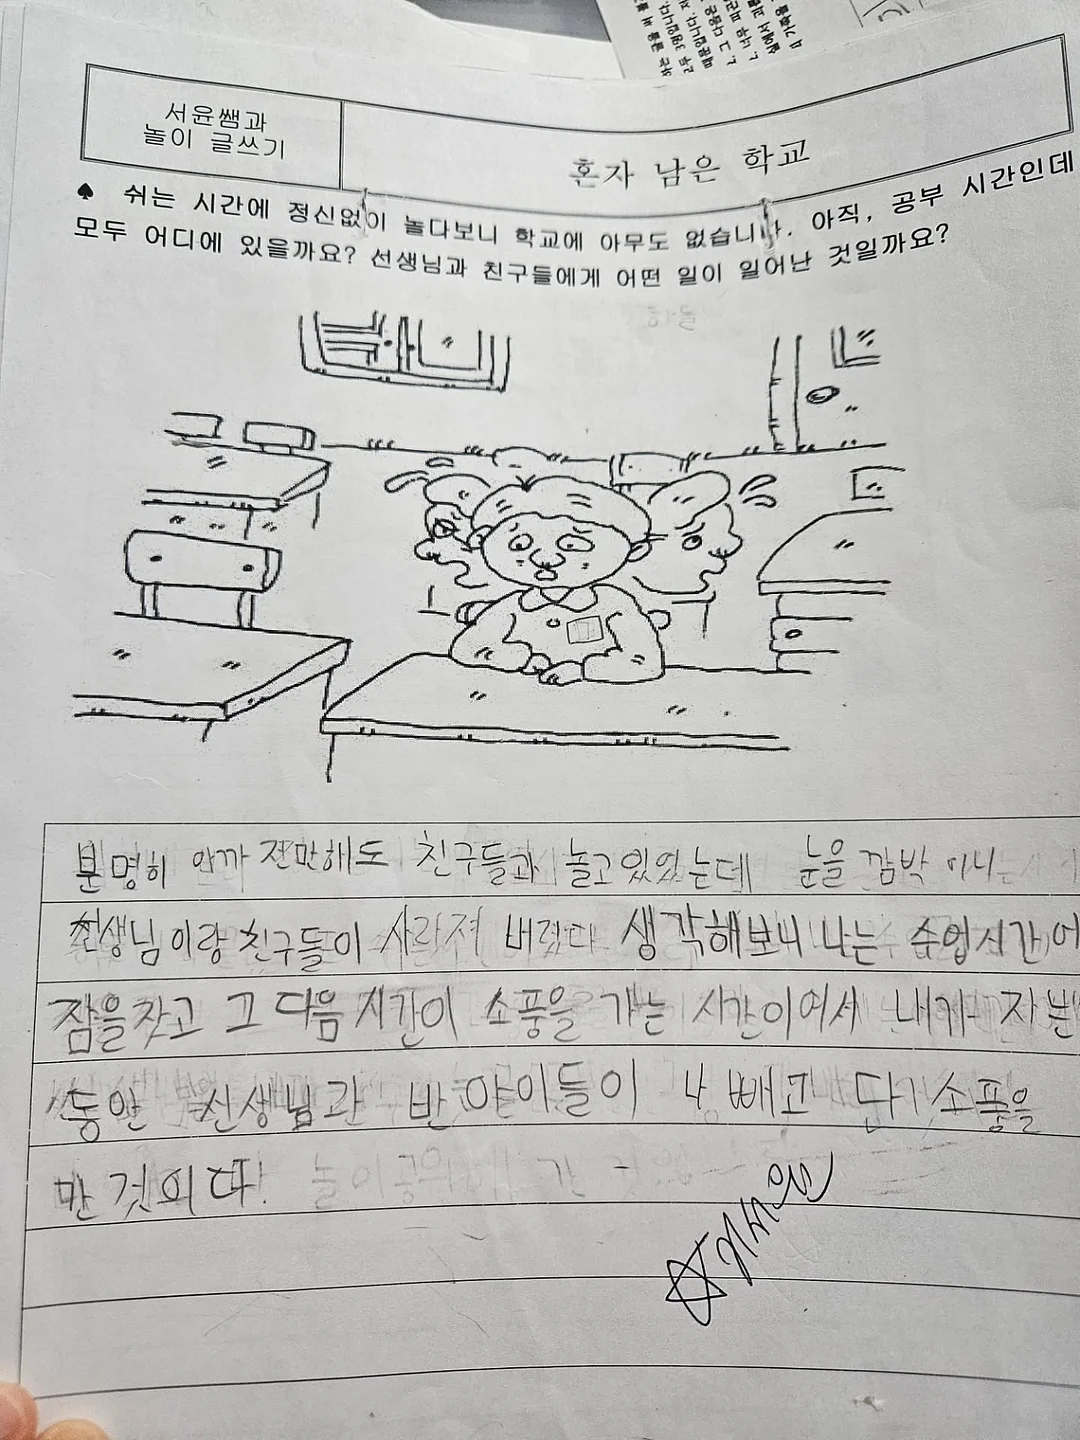 서윤쌤과
놀이 글쓰기
혼자 남은 학교
♠ 쉬는 시간에 정신없이 놀다보니 학교에 아무도 없습니다. 아직, 공부 시간인데
모두 어디에 있을까요? 선생님과 친구들에게 어떤 일이 일어난 것일까요?
분명히 아까 전만해도 친구들과 놀고 있었는데 눈을 깜박 이니
선생님이랑 친구들이 사라져 버렸다 생각해보니 나는 수업시간에
잠을 잤고 그 다음 시간이 소풍을 가는 시간이여서 내가 자는
동안 선생님과 반 아이들이 나 빼고 다 소풍을
간 것이다.